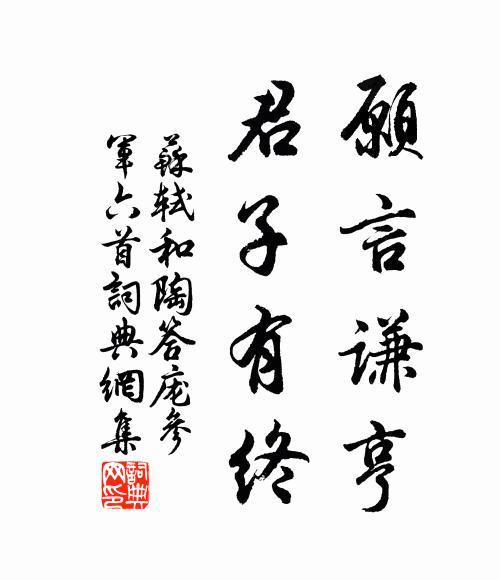 願言謙亨
君子有終
蘇軾和陶答庞參
軍六首詞典網集
詞典
网印